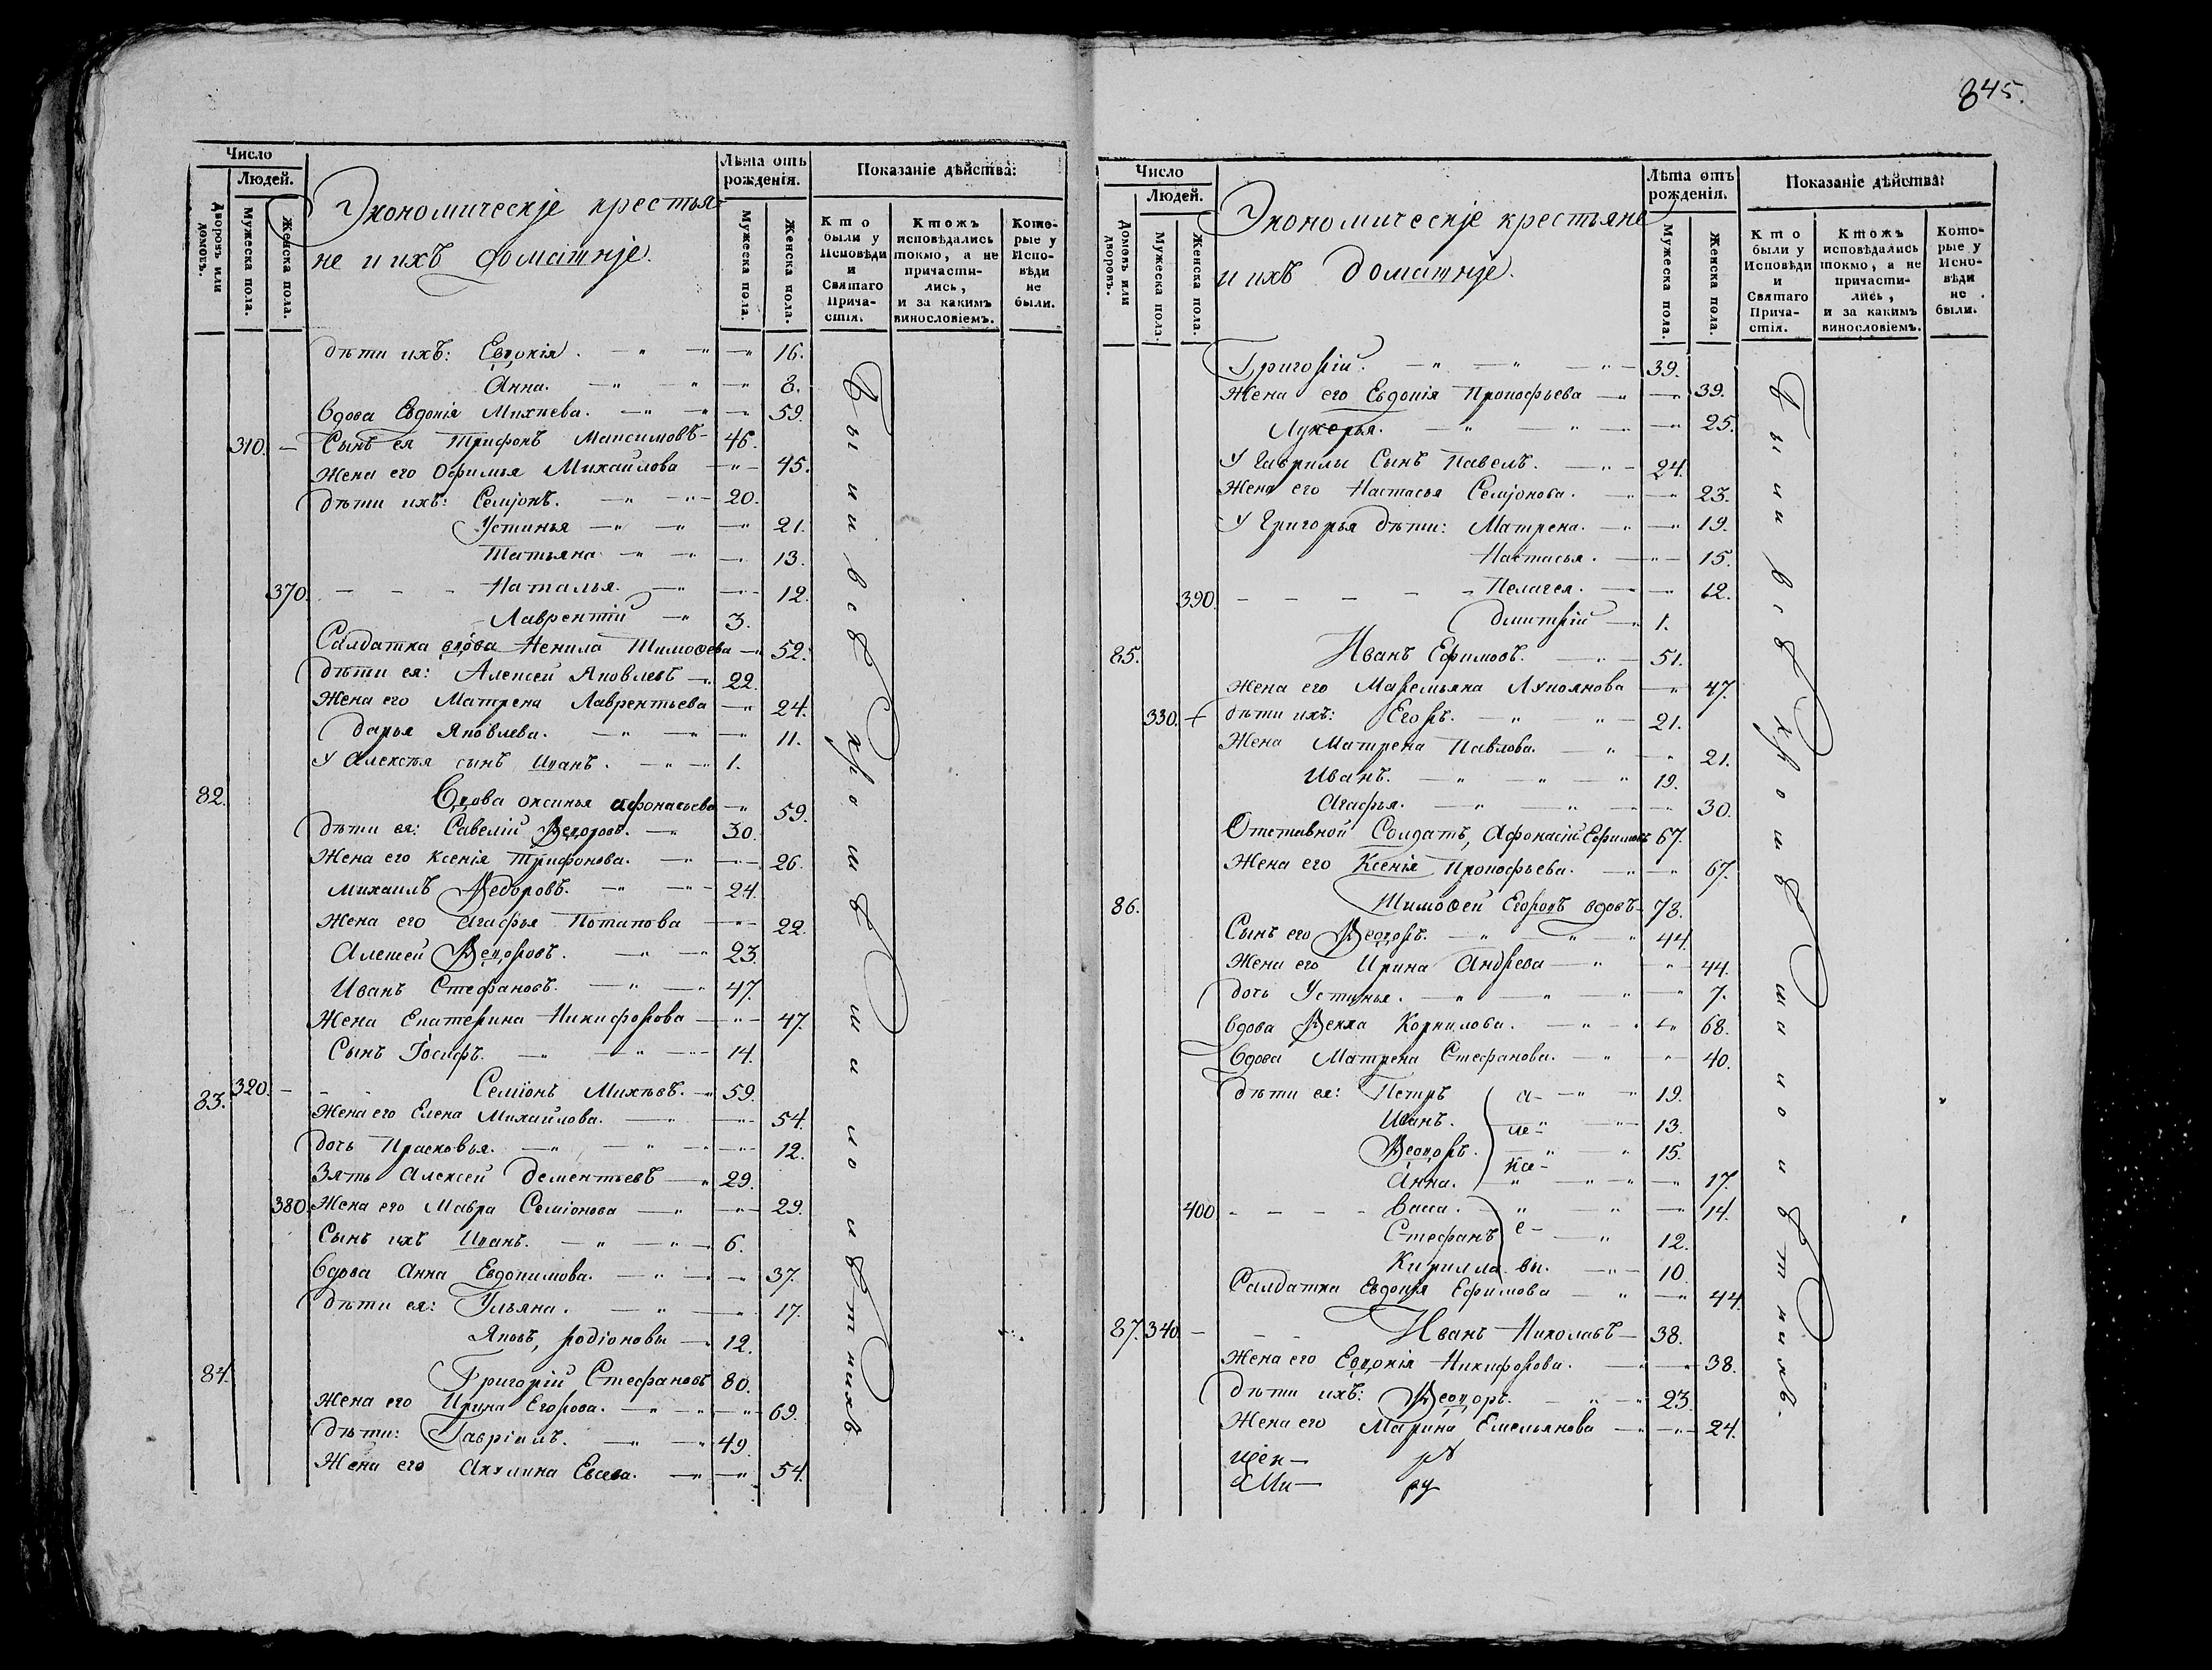 845.
Число
Людей.
Лѣта отъ рожденія.
Показаніе дѣйства:
Дворовъ или домовъ.
Мужеска пола.
Женска пола.
Экономическіе крестья-
не и ихъ домашніе.
Мужеска пола.
Женска пола.
Кто были у Исповѣди и Святаго Прича-стія.
Ктожъ исповѣдались токмо, а не причасти-лись, и за какимъ винословіемъ.
Кото-рые у Испо-вѣди не были.
дѣти ихъ: Евдокія. 16.
Анна. 8.
Вдова Евдокія Михиева. 59.
310. Сынъ ея Трифонъ Максимовъ 46.
Жена его Офимья Михайлова 45.
дѣти ихъ: Семіонъ. 20.
Устинья 21.
Татьяна 13.
370. Наталья. 12.
Лаврентій 3.
Салдатка вдова Ненила Тимоѳева 52.
дѣти ея: Алексей Яковлевъ 22.
Жена его Матрена Лаврентьева 24.
дарья Яковлева. 11.
У Алексѣя сынъ Иванъ. 1.
82. Вдова оксинья афонасьева 59.
дѣти ея: Савелій Ѳедоровъ. 30.
Жена его Ксенія Трифонова. 26.
михаилъ Ѳедоровъ. 24.
Жена его агафья Потапова 22.
Алексей Ѳедоровъ. 23.
Иванъ Стефановъ. 47.
Жена Екатерина Никифорова 47.
Сынъ Іосифъ. 14.
83. 320. Семіонъ Михѣевъ. 59.
Жена его Елена Михайлова. 54.
дочь Прасковья. 12.
Зять Алексей дементьевъ 29.
380. Жена его Мавра Семіонова 29.
Сынъ ихъ Иванъ. 6.
Вдова Анна Евдокимова. 37.
дѣти ея: Ульяна. 17.
Яковъ, родіоновы 12.
84. Григорій Стефановъ 80.
Жена его Ирина Егорова. 69.
дѣти: Гавріилъ. 49.
Жена его Акулина Евсева. 54.
Были всѣ крошѣ
Число
Людей.
Лѣта отъ рожденія.
Показаніе дѣйства:
Домовъ или дворовъ.
Мужеска пола.
Женска пола.
Экономическіе крестьяне
и ихъ домашніе.
Мужеска пола.
Женска пола.
Кто были у Исповѣди и Святаго Прича-стія.
Ктожъ исповѣдались токмо, а не причасти-лись, и за какимъ винословіемъ.
Кото-рые у Испо-вѣди не были.
Григорій. 39.
Жена его Евдокія Прокофьева 39.
Лукерья. 25.
У Гаврилы Сынъ Павелъ. 24.
Жена его Настасья Семіонова. 23.
У Григорья дѣти: Матрена. 19.
Настасья. 15.
390. Пелагея. 12.
дмитрій 1.
85. Иванъ Ефимовъ. 51.
Жена его Маремьяна Лукоянова 47.
330. дѣти ихъ: Егоръ. 21.
Жена Матрена Павлова. 21.
Иванъ. 19.
Агафья. 30.
Отставной Солдатъ, Афонасій Ефимовъ 67.
Жена его Ксенія Прокофьева. 67.
86. Тимоѳей Егоровъ вдовъ 78.
Сынъ его Ѳедоръ. 44.
Жена его Ирина Андрева 44.
дочь Устинья. 7.
Вдова Ѳекла Корнилова. 68.
Вдова Матрена Стефанова. 40.
дѣти ея: Петръ 19.
Иванъ. 13.
Ѳедоръ. 15.
Анна. 17.
400. Васса. 14.
Стефанъ 12.
Кирилла 10.
Салдатка Евдокія Ефимова 44.
87. 340. Иванъ Николаевъ 38.
Жена его Евдокія Никифорова. 38.
дѣти ихъ: Ѳеодоръ. 23.
Жена его Марина Емельянова 24.